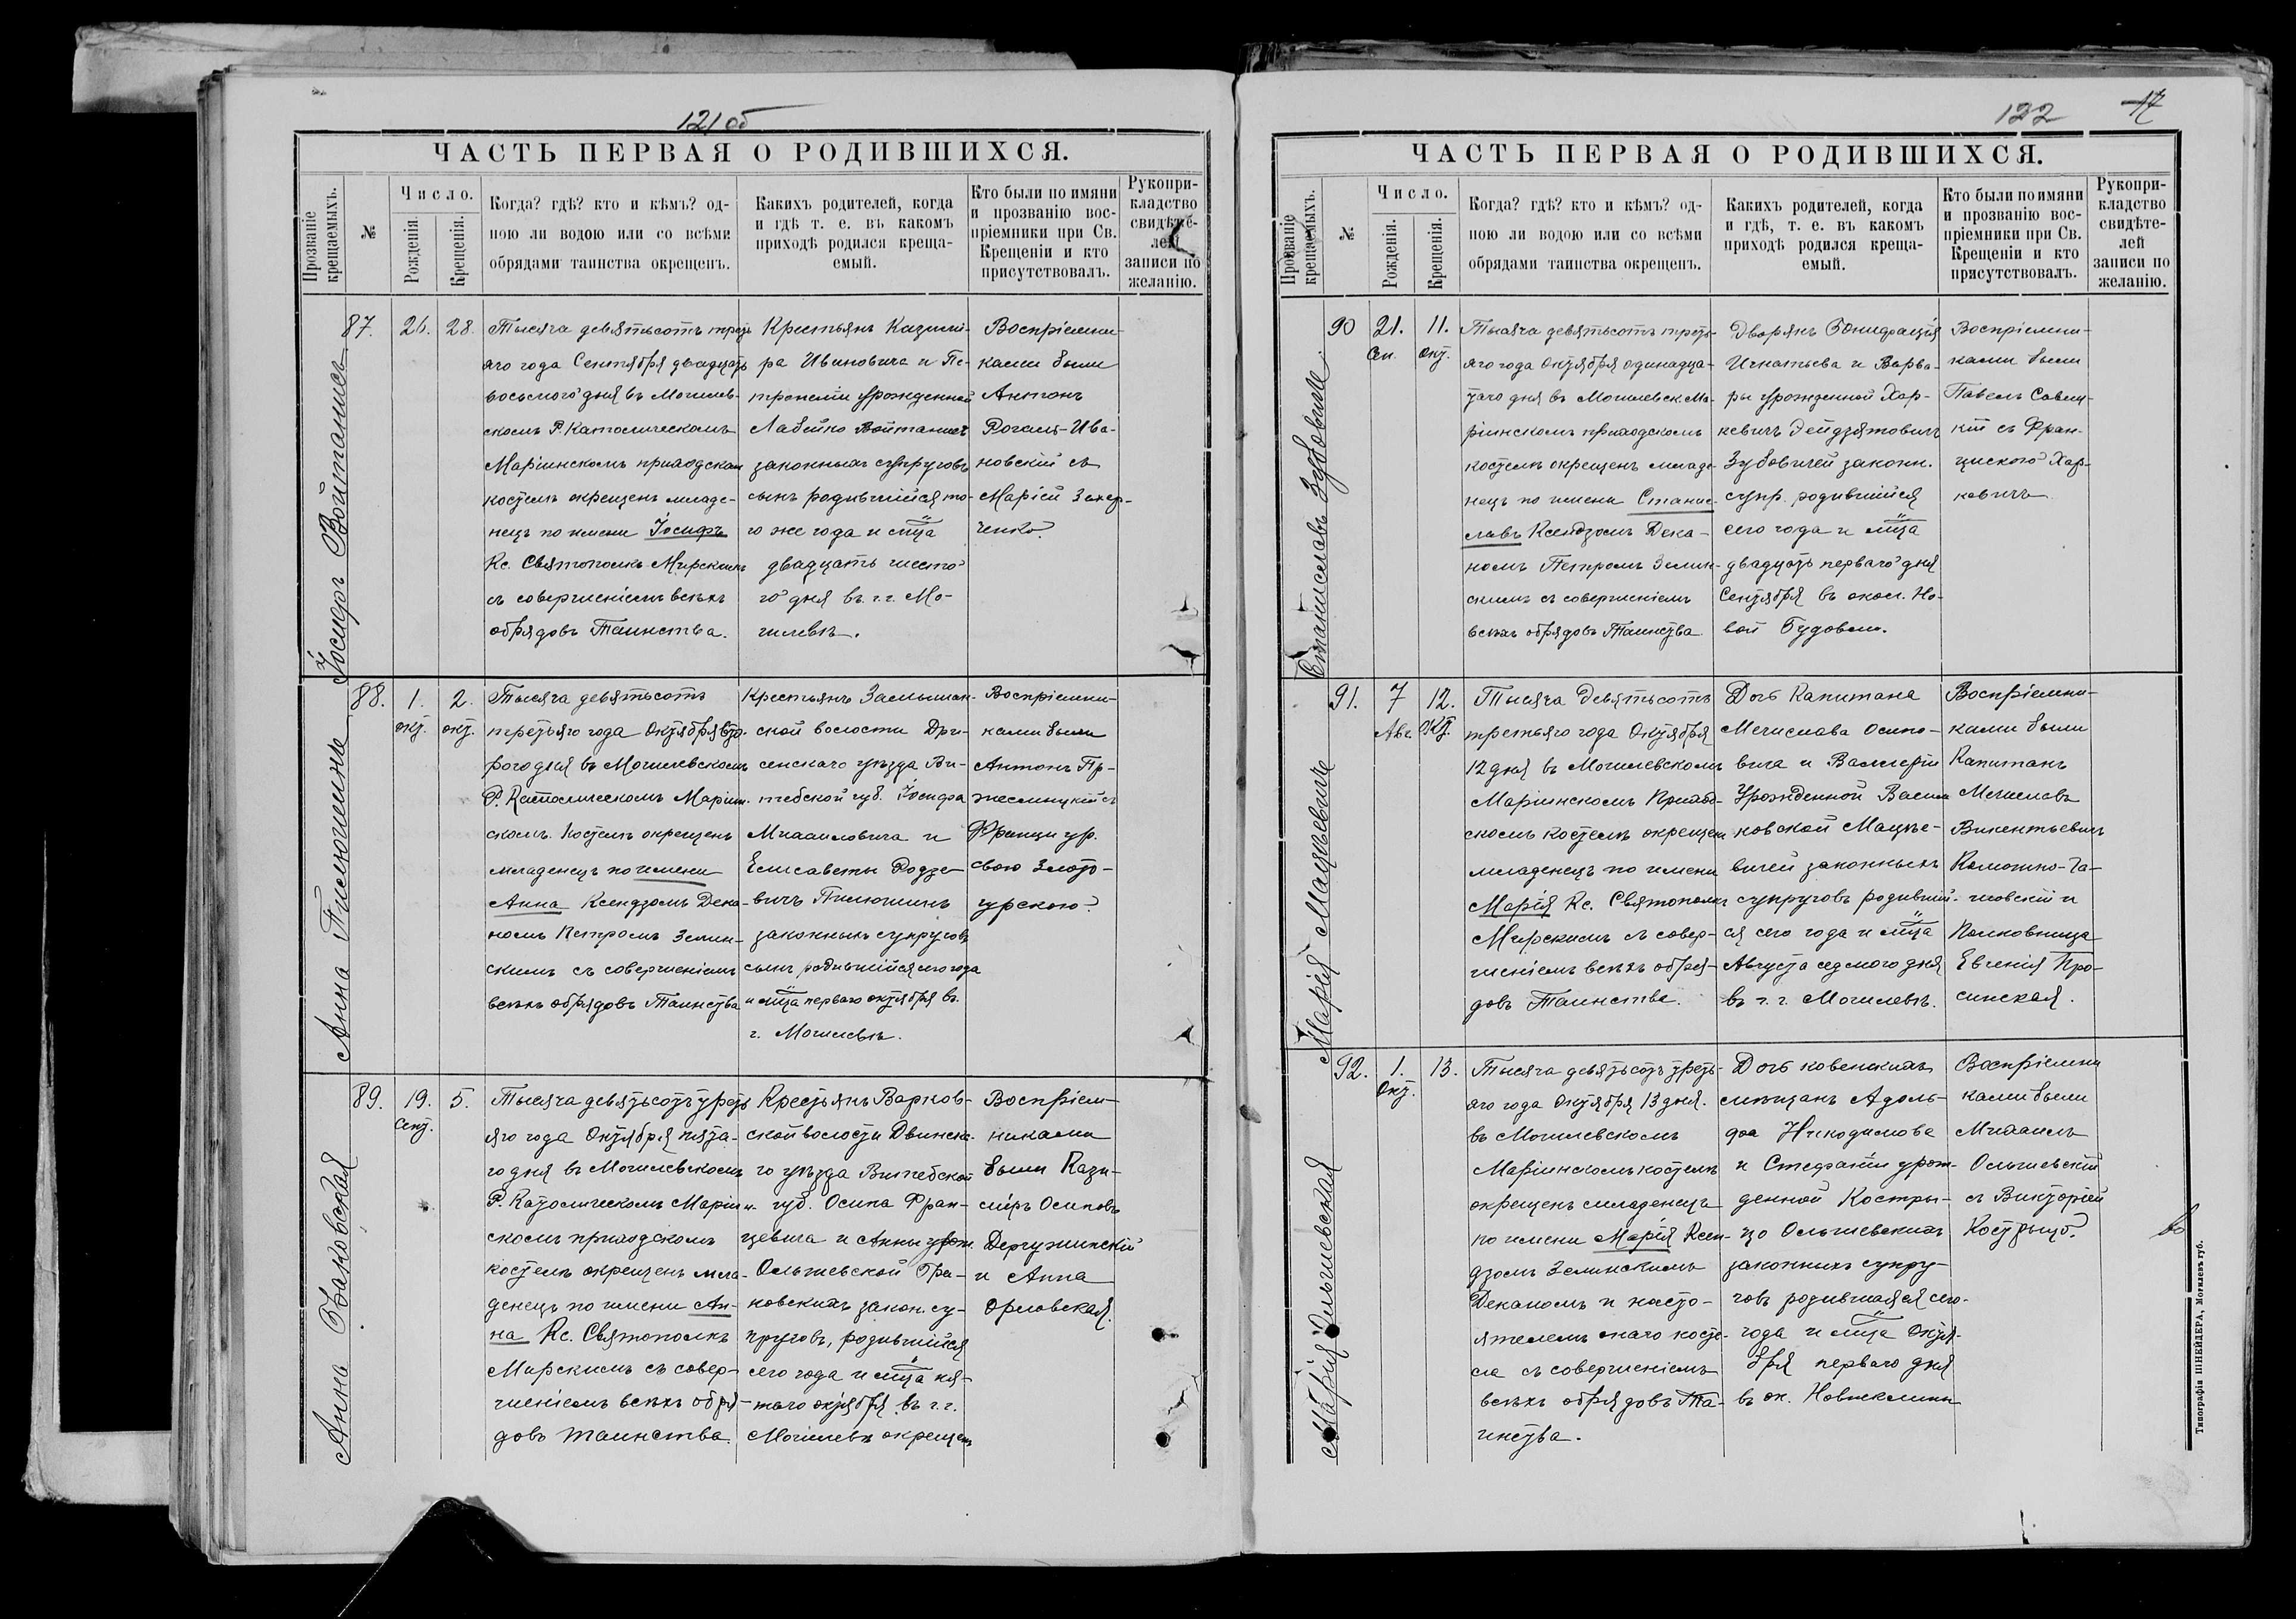 121 об
ЧАСТЬ ПЕРВАЯ О РОДИВШИХСЯ.
Прозваніе крещаемыхъ.
№
Число.
Рожденія.
Крещенія.
Когда? гдѣ? кто и кѣмъ? од-
ною ли водою или со всѣми
обрядами таинства окрещенъ.
Какихъ родителей, когда
и гдѣ т. е. въ какомъ
приходѣ родился креща-
емый.
Кто были по имяни
и прозванію вос-
пріемники при Св.
Крещеніи и кто
присутствовалъ.
Рукопри-
кладство
свидѣте-
лей
записи по
желанію.
Іосифъ Войтаникъ
87.
26.
28.
Тысяча девятьсотъ треть
яго года Сентября двадцать
восьмого дня въ Могилев-
скомъ Р. Католическомъ
Маріинскомъ приходском
костелѣ окрещенъ младе-
нецъ по имени Іосифъ
Кс. Святополкъ Мирскимъ
съ совершеніемъ всѣхъ
обрядовъ Таинства.
Крестьянъ Казими-
ра Ивановича и Пе-
тронели урожденной
Лабейко Войтаникъ
законныхъ супруговъ
сынъ родившійся то-
го же года и мѣца
двадцать шесто
го дня въ г. г. Мо-
гилевѣ.
Воспріемни-
ками были
Антонъ
Рогаль-Ива-
новскій съ
Маріей Захар-
ченко.
Анна Пилюшина
88.
1.
окт.
2.
окт.
Тысяча девятьсотъ
третьяго года Октября вто-
рого дня въ Могилевскомъ
Р. Католическомъ Маріин-
скомъ костелѣ окрещенъ
младенецъ по имени
Анна Ксендзомъ Дека-
номъ Петромъ Зелин-
скимъ съ совершеніемъ
всѣхъ обрядовъ Таинства
Крестьянъ
ской волости Дри-
сенскаго уѣзда Ви-
тебской губ. Іосифа
Михаиловича и
Елисаветы Родзе-
вичъ Пилюшинъ
законныхъ супруговъ
сынъ родившійся сего года
и мѣца перваго октября въ
г. Могилевѣ.
Воспріемни-
ками были
Антонъ Пр-
жеслицкій съ
Франци ур.
свою Злот-
гурскою.
Анна Браковская
89.
19.
Сент.
5.
Тысяча девятьсотъ треть
яго года Октября пята-
го дня въ Могилевскомъ
Р. Католическомъ Маріин-
скомъ приходскомъ
костелѣ окрещенъ мла-
денецъ по имени Ан-
на Кс. Святополкъ
Мирскимъ съ совер-
шеніемъ всѣхъ обря-
довъ таинства.
Крестьянъ Варков-
ской волости Двинска-
го уѣзда Витебской
губ. Осипа Фран-
цевича и Анны урож.
Ольшевской Бра-
ковскихъ закон. су-
пруговъ, родившійся
сего года и мѣца пя-
таго октября въ г. г.
Могилевѣ окрещенъ
Воспріем-
никами
были Кази-
міръ Осиповъ
Держинскій
и Анна
Орловская.
122
17
ЧАСТЬ ПЕРВАЯ О РОДИВШИХСЯ.
Прозваніе крещаемыхъ.
№
Число.
Рожденія.
Крещенія.
Когда? гдѣ? кто и кѣмъ? од-
ною ли водою или со всѣми
обрядами таинства окрещенъ.
Какихъ родителей, когда
и гдѣ, т. е. въ какомъ
приходѣ родился креща-
емый.
Кто были по имяни
и прозванію вос-
пріемники при Св.
Крещеніи и кто
присутствовалъ.
Рукопри-
кладство
свидѣте-
лей
записи по
желанію.
Станиславъ Зубовичъ
90
21.
Сен.
11.
Окт.
Тысяча девятьсотъ треть-
яго года Октября одинадца-
таго дня въ Могилевск. Ма-
ріинскомъ приходскомъ
костелѣ окрещенъ младе-
нецъ по имени Станис-
лавъ Ксендзомъ Дека-
номъ Петромъ Зелин-
скимъ съ совершеніемъ
всѣхъ обрядовъ Таинства
Дворянъ Бонифація
Игнатьева и Варва-
ры урожденной Хар-
кевичъ Дейдзятовичъ
Зубовичей законн.
супр. родившійся
сего года и мѣца
двадцать перваго дня
Сентября въ окол. Но-
вой Будовли.
Воспріемни-
ками были
Павелъ Савиц-
кій съ Фран-
циской Хар-
кевичъ
Марія Мацкевичъ
91.
7
Авг.
12.
Окт.
Тысяча Девятьсотъ
третьяго года Октября
12 дня въ Могилевскомъ
Маріинскомъ Приход-
скомъ костелѣ окрещен
младенецъ по имени
Марія Кс. Святополкъ
Мирскимъ съ совер-
шеніемъ всѣхъ обря-
довъ Таинства.
Дочь Капитана
Мечислава Осипо-
вича и Валеріи
Урожденной Васил
ковской Мацке-
вичей законныхъ
супруговъ родивший-
ся сего года и мѣца
Августа седмого дня
въ г. г. Могилевѣ.
Воспріемни-
ками были
Капитанъ
Мечиславъ
Викентьевичъ
и
Полковница
Евгенія Про-
синская.
Марія Ольшевская
92.
1.
Окт.
13.
Тысяча девятьсотъ треть-
яго года Октября 13 дня.
въ Могилевскомъ
Маріинскомъ костелѣ
окрещенъ младенецъ
по имени Марія Ксен-
дзомъ Зелинскимъ
Деканомъ и насто-
ятелемъ онаго косте-
ла съ совершеніемъ
всѣхъ обрядовъ Та-
инства.
Дочь ковенскихъ
мѣщанъ Адоль-
фа Никодимова
и Стефаніи урож-
денной Костры-
цо Ольшевскихъ
законныхъ супру-
говъ родившаяся сего-
года и мѣца Октя-
бря перваго дня
въ ок.
Воспріемни
ками были
Михаилъ
Ольшевскій
съ Викторіей
Кострыцо.
Типографія ШНЕЙДЕРА, Могилевъ губ.